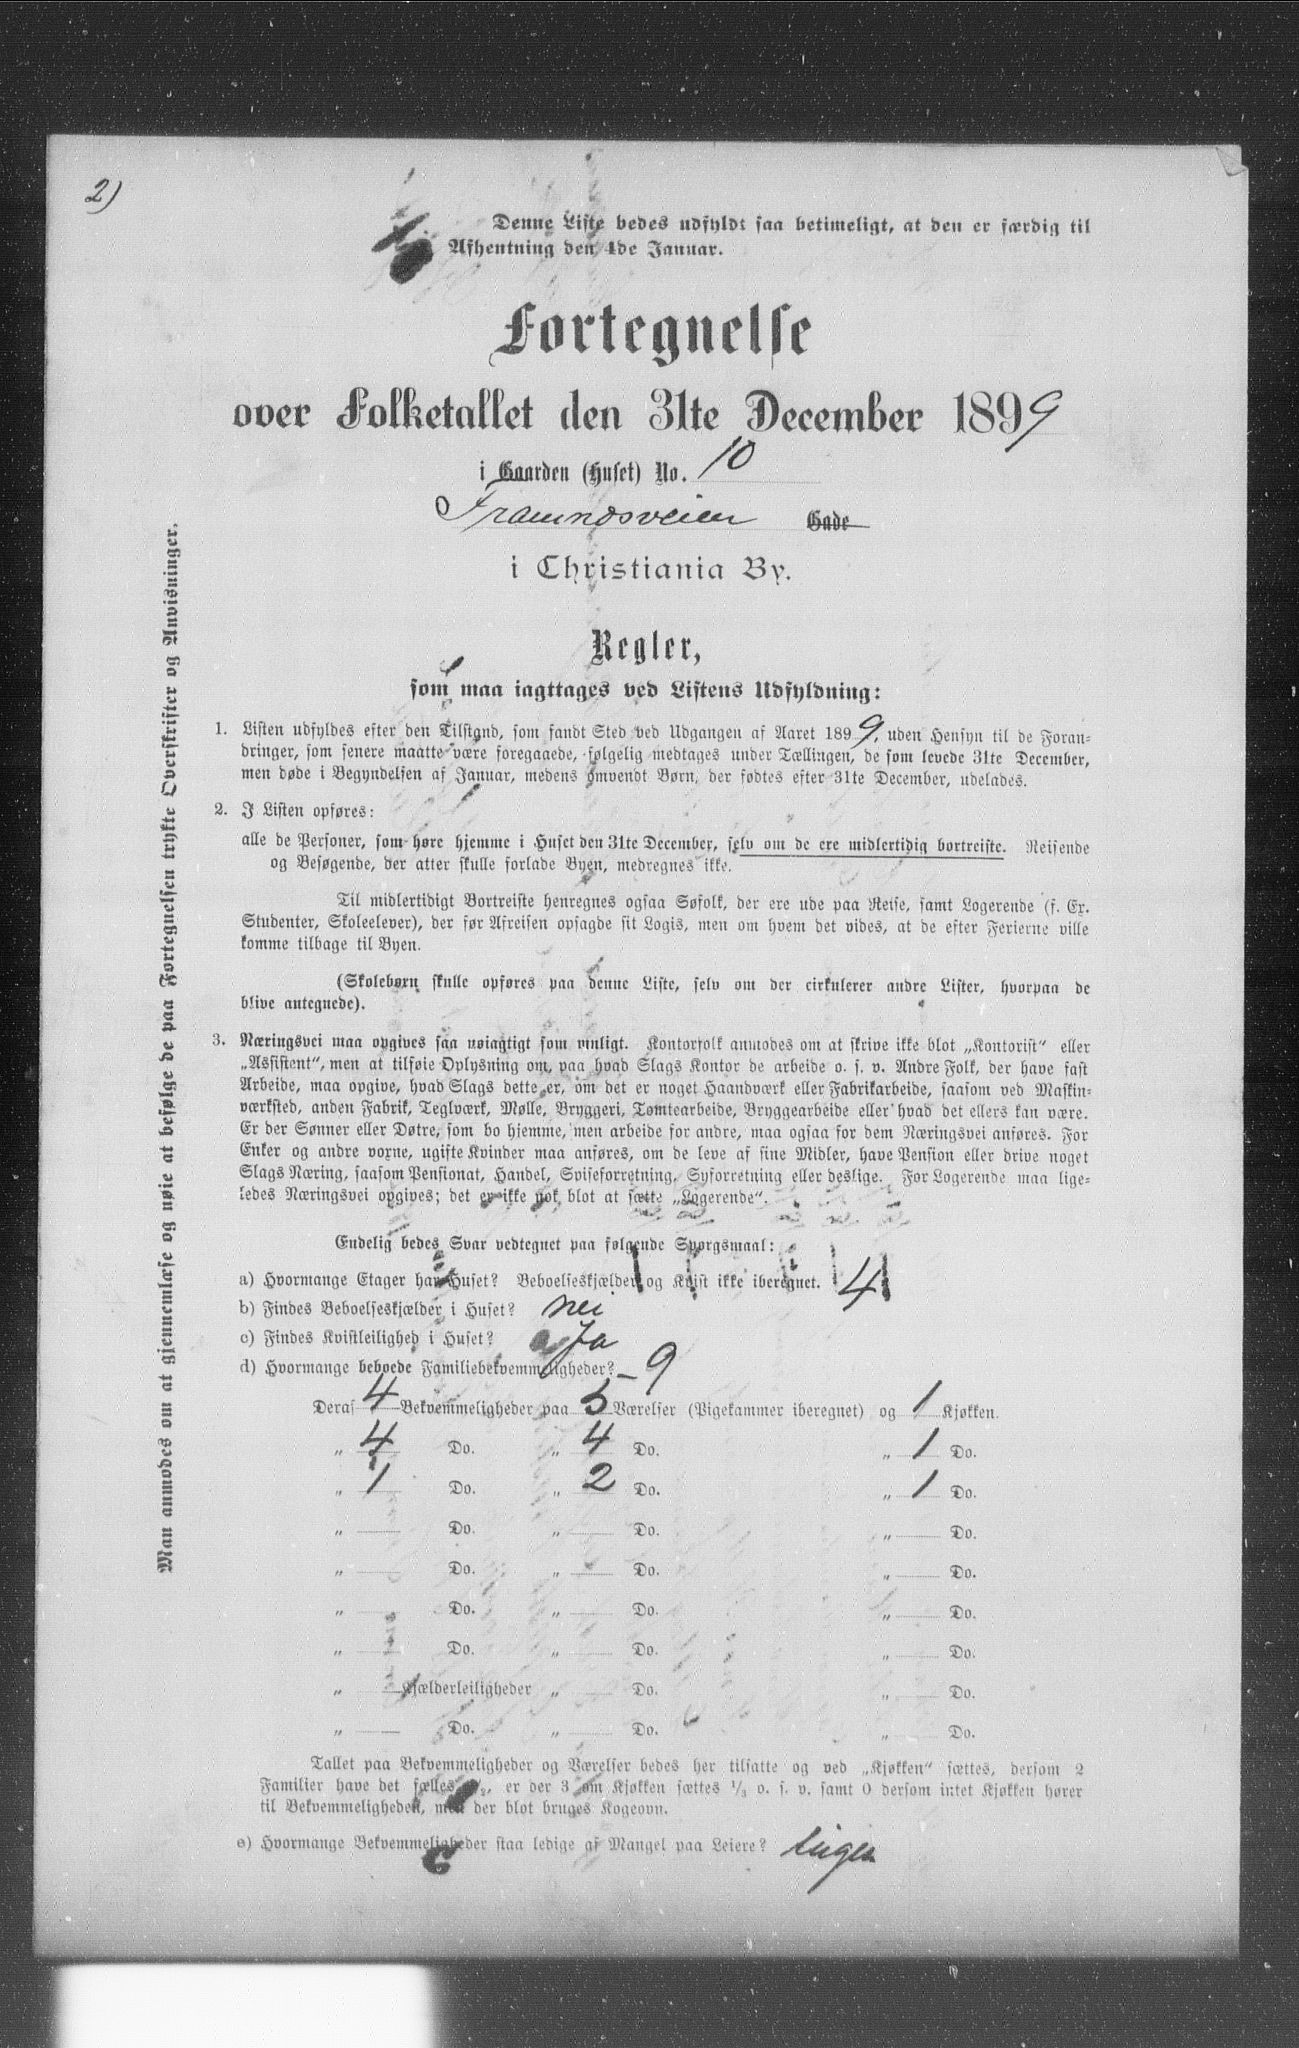 2)
Denne Liste bedes udfyldt saa betimeligt, at den er færdig til
Afhentning den 4de Januar.
Fortegnelse
over Folketallet den 31te December 1899
i Gaarden (Huset) No. 10
Gade
i Christiania By.
Regler,
som maa iagttages ved Listens Udfyldning:
1. Listen udfyldes efter den Tilstand, som fandt Sted ved Udgangen af Aaret 1899, uden Hensyn til de Foran-
dringer, som senere maatte være foregaaede, følgelig medtages under Tællingen, de som levede 31te December,
men døde i Begyndelsen af Januar, medens omvendt Børn, der fødtes efter 31te December, udelades.
2. I Listen opføres:
alle de Personer, som høre hjemme i Huset den 31te December, selv om de ere midlertidig bortreiste. Reisende
og Besøgende, der atter skulle forlade Byen, medregnes ikke.
Til midlertidigt Bortreiste henregnes ogsaa Søfolk, der ere ude paa Reise, samt Logerende (f. Ex.
Studenter, Skoleelever), der før Afreisen opsagde sit Logis, men om hvem det vides, at de efter Ferierne ville
komme tilbage til Byen.
(Skolebørn skulle opføres paa denne Liste, selv om der cirkulerer andre Lister, hvorpaa de
blive antegnede).
3. Næringsvei maa opgives saa nøiagtigt som muligt. Kontorfolk anmodes om at skrive ikke blot „Kontorist“ eller
„Assistent“, men at tilføie Oplysning om, paa hvad Slags Kontor de arbeide o. s. v. Andre Folk, der have fast
Arbeide, maa opgive, hvad Slags dette er, om det er noget Haandværk eller Fabrikarbeide, saasom ved Maskin-
værksted, anden Fabrik, Teglværk, Mølle, Bryggeri, Tomtearbeide, Bryggearbeide eller hvad det ellers kan være.
Er der Sønner eller Døtre, som bo hjemme, men arbeide for andre, maa ogsaa for dem Næringsvei anføres. For
Enker og andre voxne, ugifte Kvinder maa anføres, om de leve af sine Midler, have Pension eller drive noget
Slags Næring, saasom Pensionat, Handel, Spiseforretning, Syforretning eller deslige. For Logerende maa lige-
ledes Næringsvei opgives; det er ikke nok blot at sætte „Logerende“.
Endelig bedes Svar vedtegnet paa følgende Spørgsmaal:
a) Hvormange Etager har Huset? Beboelseskjælder og Kvist ikke iberegnet. 4
b) Findes Beboelseskjælder i Huset? nei
c) Findes Kvistleilighed i Huset? Ja
d) Hvormange beboede Familiebekvemmeligheder? – 9
Deraf 4 Bekvemmeligheder paa 5 Værelser (Pigekammer iberegnet) og 1 Kjøkken.
„ 4 Do. „ 4 Do. „ 1 Do.
„ 1 Do. „ 2 Do. „ 1 Do.
„ Do. „ Do. „ Do.
„ Do. „ Do. „ Do.
„ Do. „ Do. „ Do.
„ Do. „ Do. „ Do.
„ Kjælderleiligheder „ Do. „ Do.
„ Do. „ Do. „ Do.
Tallet paa Bekvemmeligheder og Værelser bedes her tilsatte og ved „Kjøkken“ sættes, dersom 2
Familier have det fælles ½, er der 3 om Kjøkken sættes 1/3 o. s. v. samt 0 dersom intet Kjøkken hører
til Bekvemmeligheden, men der blot bruges Kogeovn.
e) Hvormange Bekvemmeligheder staa ledige af Mangel paa Leiere? Ingen
Man anmodes om at gjennemlæse og nøie at befølge de paa Fortegnelsen trykte Overskrifter og Anvisninger.